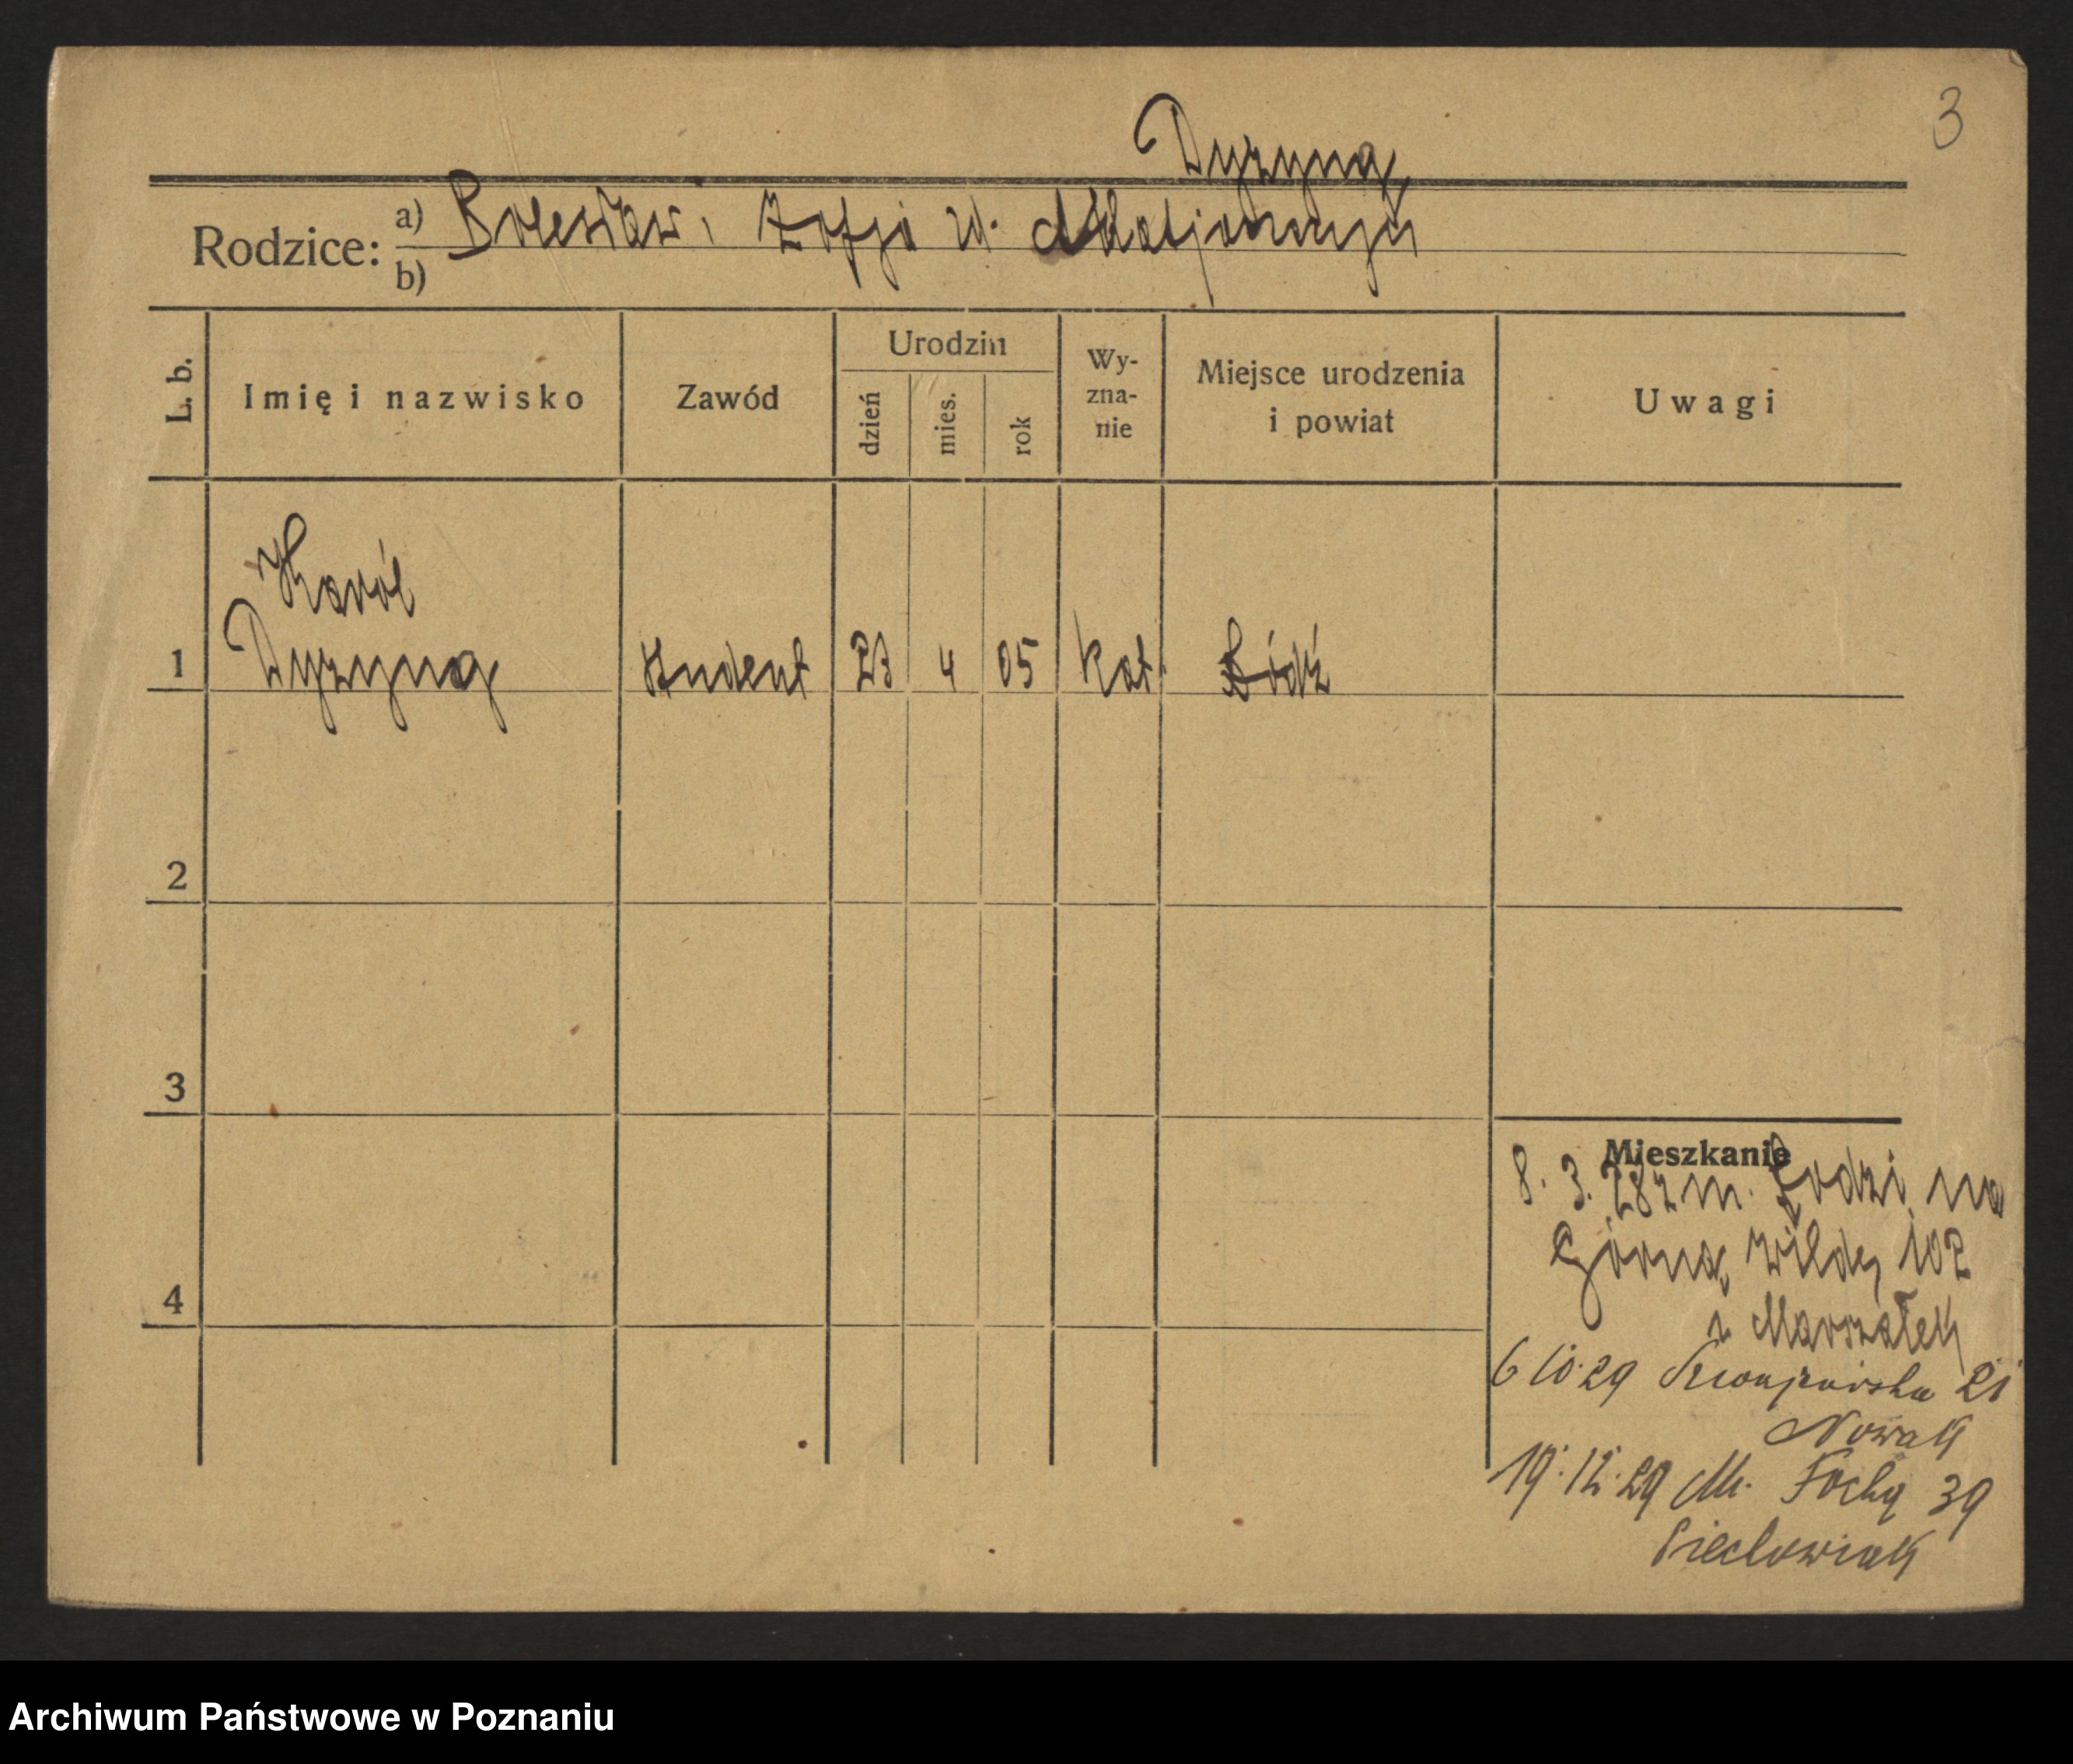 3
Dyzyna
Rodzice: a) Bolesław i Zofja u. Matjanczyk
b)
L. b.
Imię i nazwisko
Zawód
Urodzin
dzień
mies.
rok
Wy-
zna-
nie
Miejsce urodzenia
i powiat
Uwagi
Karól
1 Dyzyna student 23 4 05 kat. Łódź
2
3
4
Mieszkanie
8. 3. 28 z m. Łodzi na
Górną Wildę 102
z Marszałek
6 10.29 21
Nowak
19.12.29 M. Focha 39
Pieclowiak
Archiwum Państwowe w Poznaniu